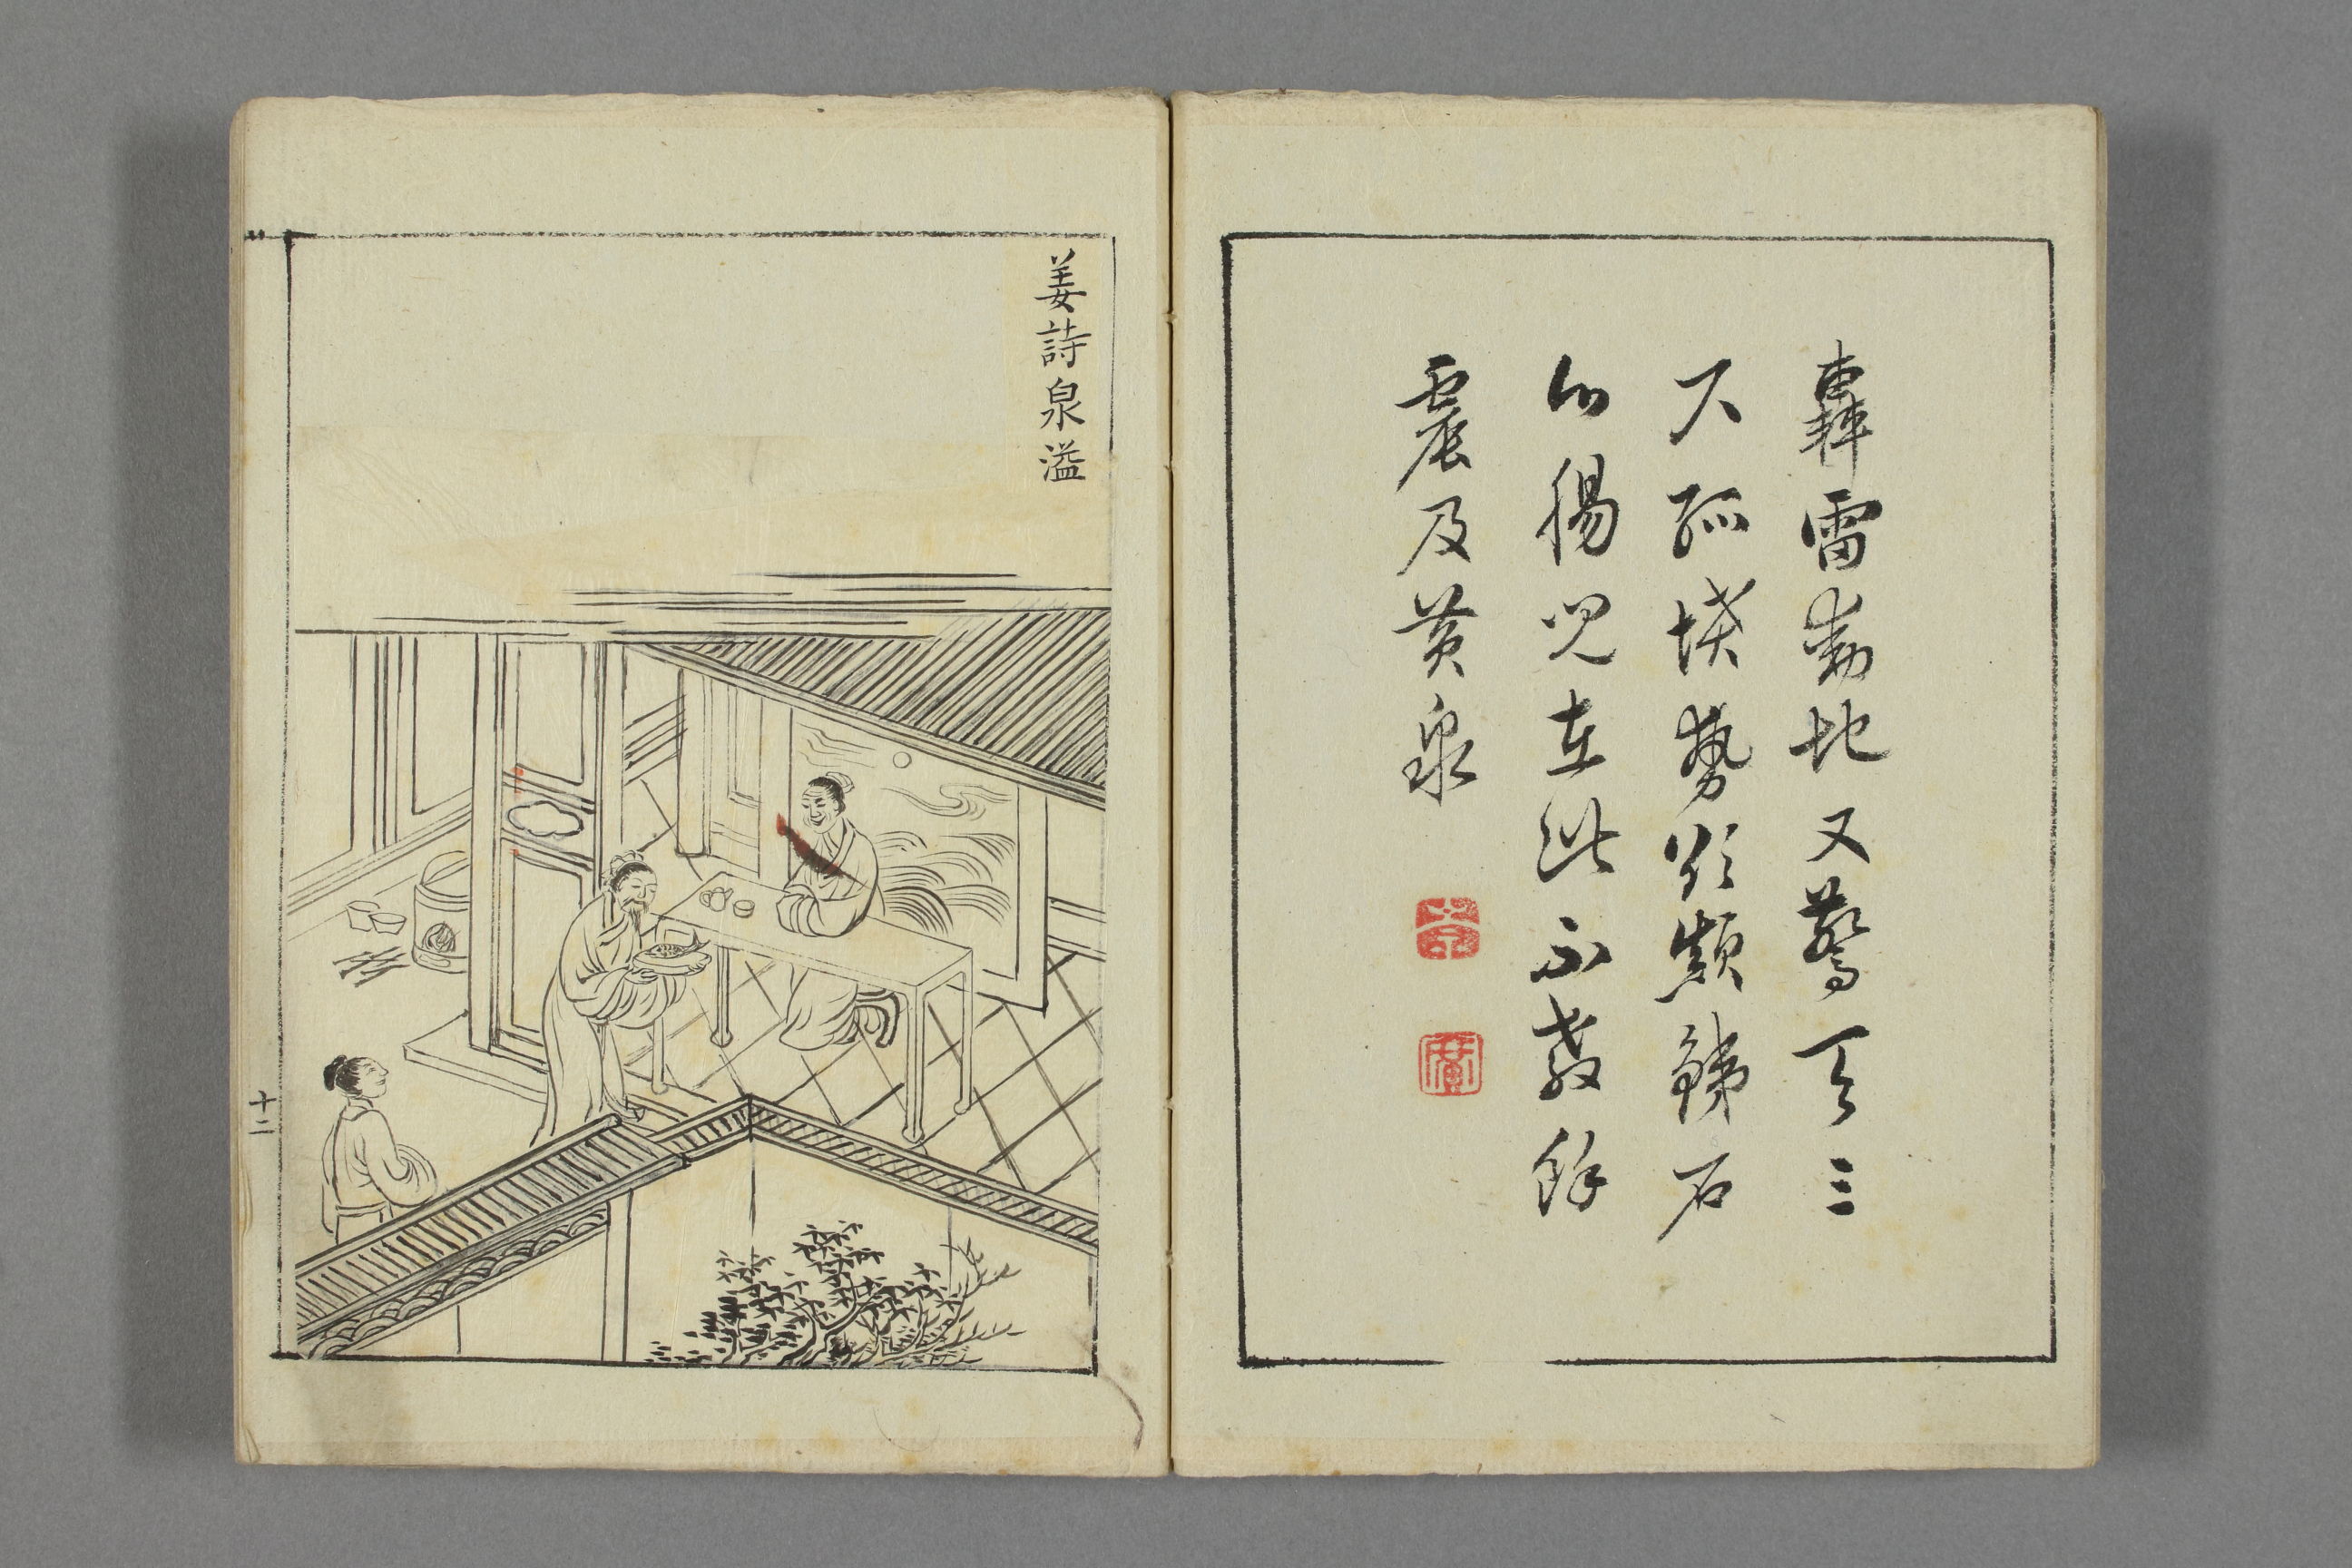 轟雷動地又驚天三
尺孤墳勢欲顛銕石
心腸兒在此不教餘
震及黃泉
姜詩泉溢
十二